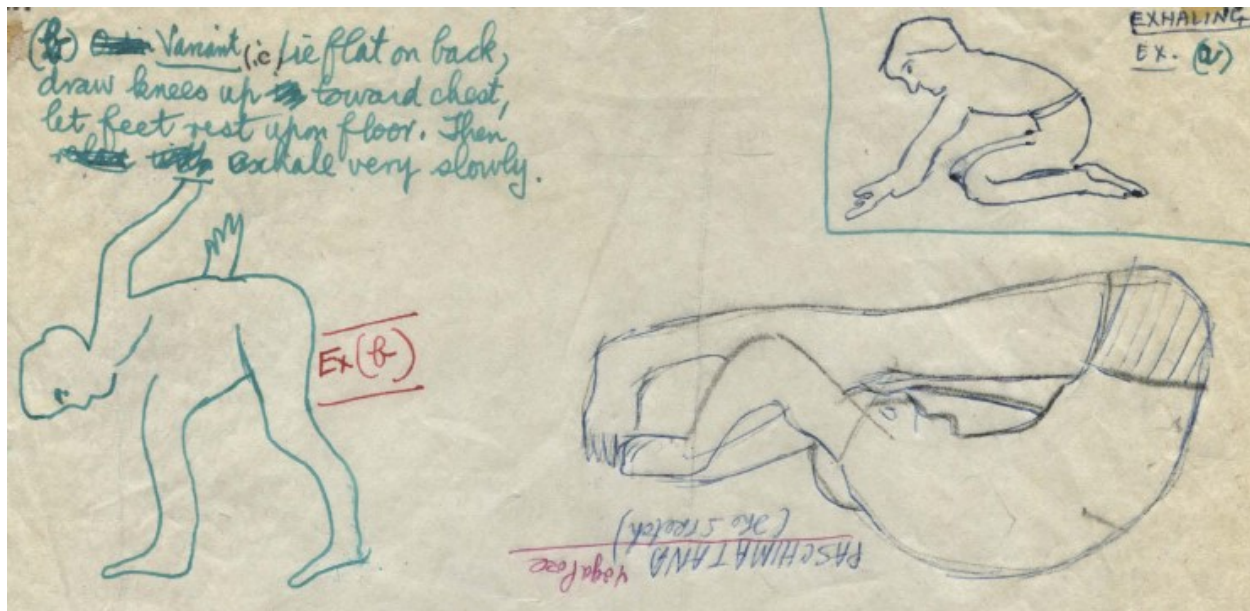 (b) Variant (i.e. lie flat on back,
draw knees up toward chest,
let feet rest upon floor. Then
exhale very slowly.
EXHALING
EX. (a)
Ex (b)
PASCHIMATANA
(The Stretch)
Yoga Pose